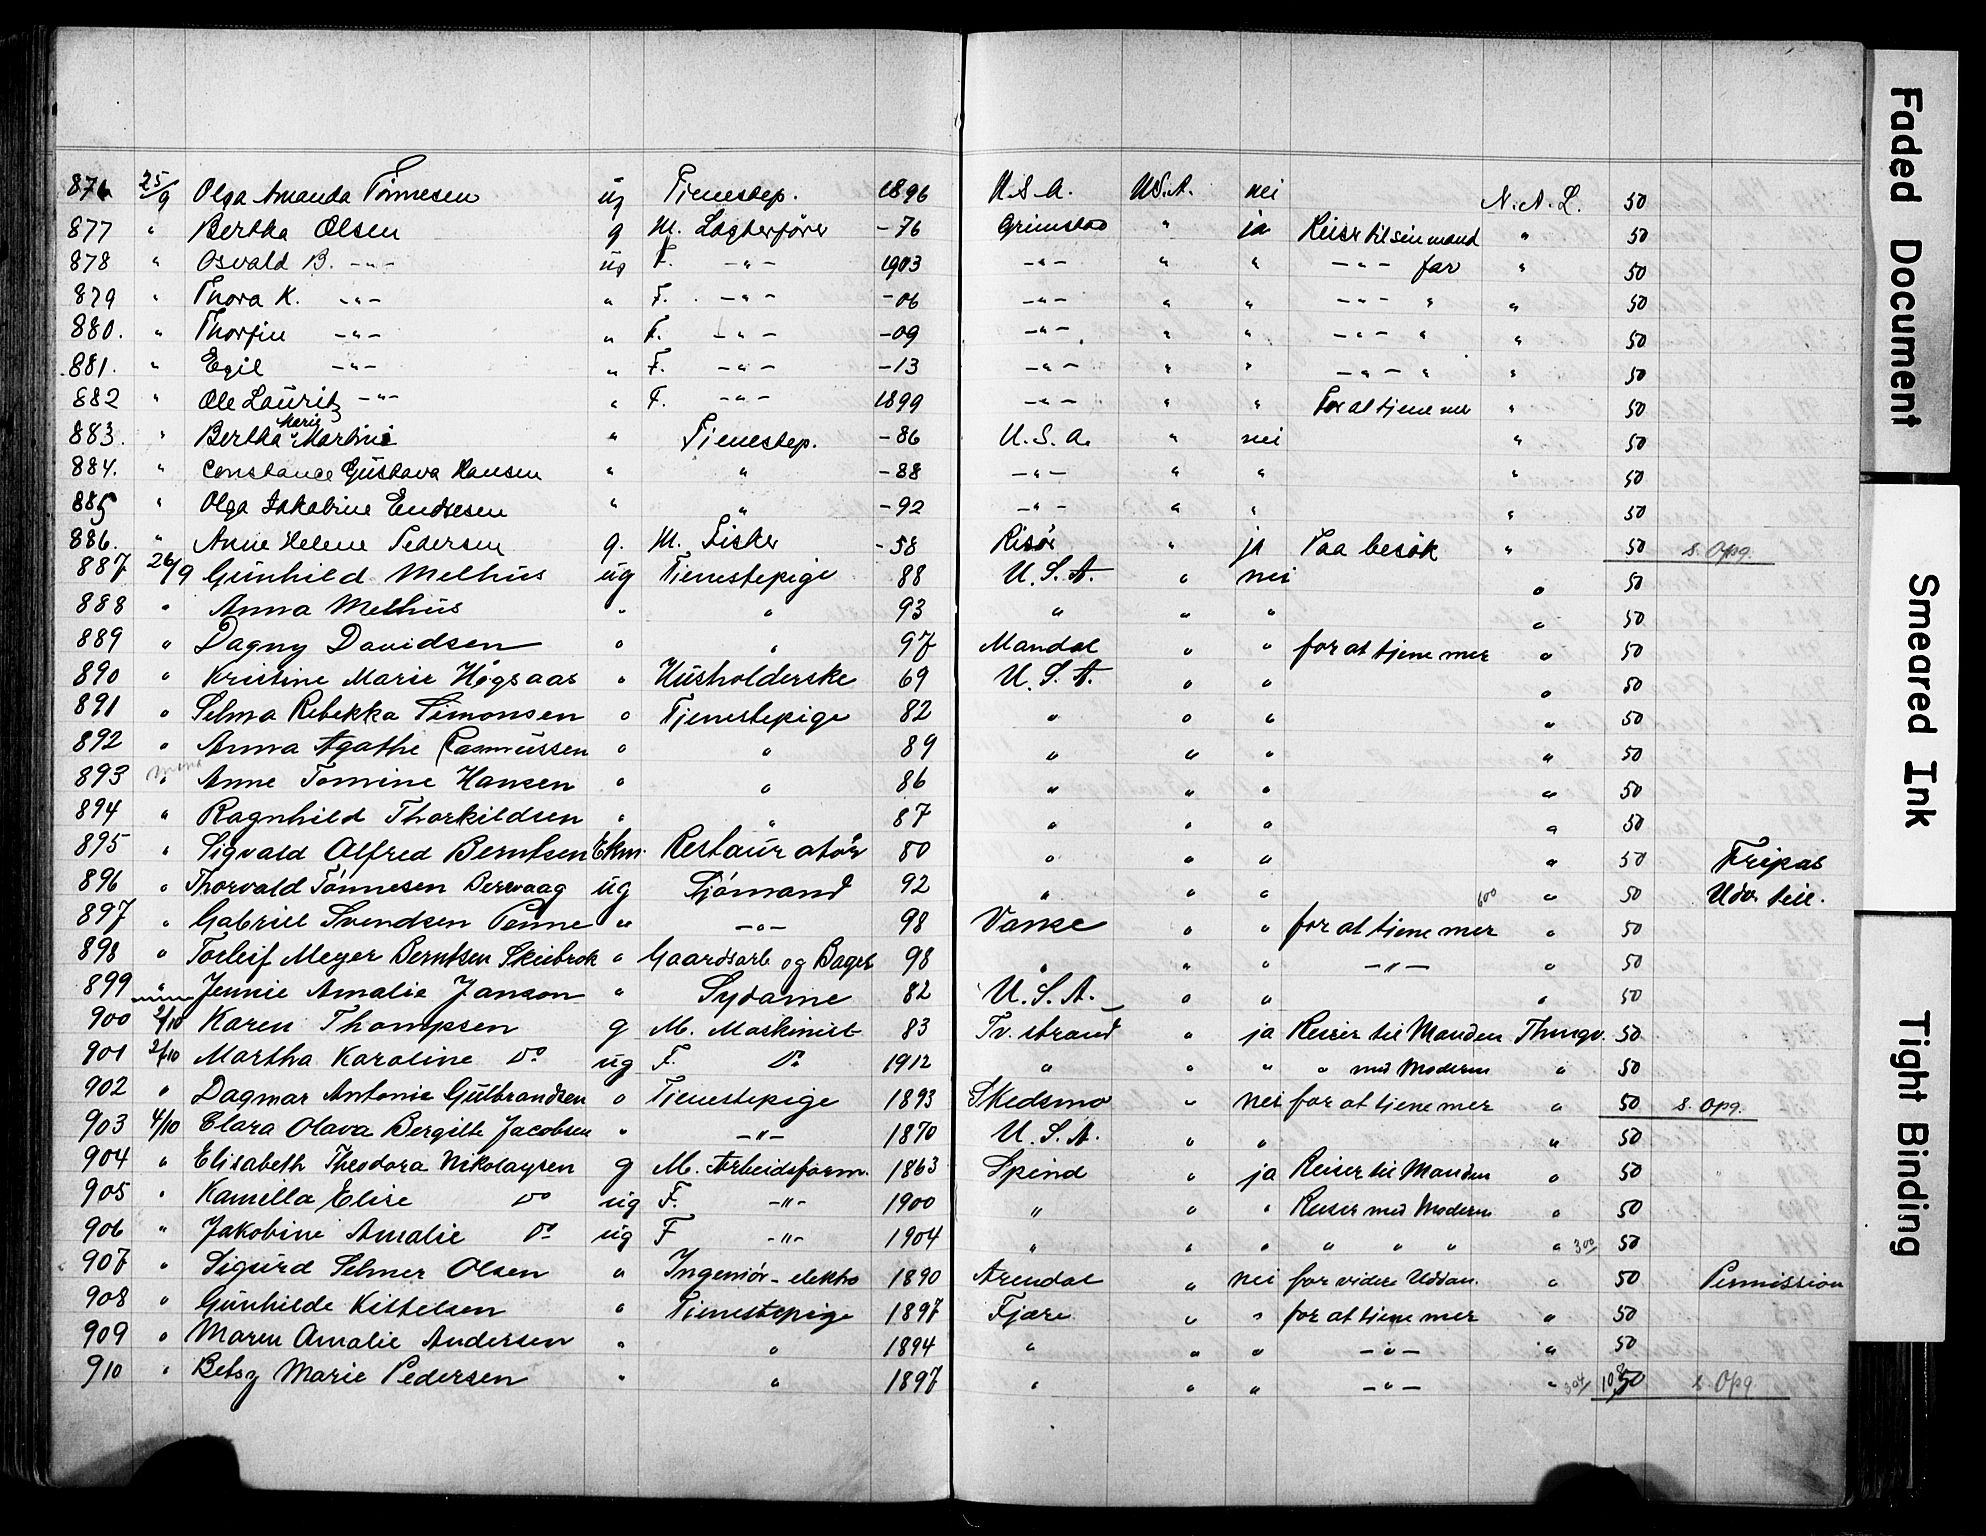 876 25/9 Olga Amanda Tönnesen ug Tienestep. 1896 U.S.A. U.S.A. nei N.A.L. 50
877 " Bertha Olsen g M. Lagterförer -76 Grimstad " ja Reiser til sin mand " 50
878 " Osvald B. -"- ug F. -"- 1903 -"- " " -"- far " 50
879 " Thora K. -"- " F. -"- -06 -"- " " -"- " " 50
880. " Thorfin -"- " F. -"- -09 -"- " " -"- " " 50
881. " Egil -"- " F. -"- -13 -"- " " -"- " " 50
882 " Ole Lauritz -"- " F. -"- 1899 -"- " " For at tjene mer " 50
883. " Bertha Marie Martine " Tienestep. -86 U.S.A. " nei " 50
884. " Constance Gustava Hansen " " -88 -"- " " " 50
885 " Olga Jakobine Endresen " " -92 -"- " " " 50
886. " Anne Helene Pedersen g. M. Fisker -58 Risör " ja Paa besök " 50 s. Opg.
887 26/9 Gunhild Melhus ug Tienestepige 88 U.S.A. " nei " 50
888 " Anna Melhus " " 93 " " " " 50
889 " Dagny Davidsen " " 97 Mandal " " for at tjene mer " 50
890 " Kristine Marie Högsaas " Husholderske 69 U.S.A. " " " 50
891 " Selma Rebekka Simonsen " Tjenestepige 82 " " " " 50
892 " Anna Agathe Rasmussen " " 89 " " " " 50
893 " Anne Tomine Hansen " " 86 " " " " 50
894 " Ragnhild Thorkildsen " " 87 " " " " 50
895 " Sigvald Alfred Berntsen Ekm. Restauratör 80 " " " " 50 Fripas
896 " Thorvald Tönnesen Bervaag ug Sjömand 92 " " " 600 " 50 Udv. till.
897 " Gabriel Svendsen Penne " -"- 98 Vanse " " for at tjene mer " 50
898 " Torleif Meyer Berntsen Skeibrok " Gaardsarb og Bager 98 " " " -"- " 50
899 " Jennie Amalie Janson " Sydame 82 U.S.A. " " " 50
900 2/10 Karen Thompsen g M. Maskinist 83 Tv.strand " ja Reiser til Manden Thingv. 50
901 2/10 Martha Karoline do ug F. do 1912 " " " " med Moderen " 50
902 " Dagmar Antonie Gulbrandsen " Tienestepige 1893 Skedsmo " nei for at tjene mer " 50 s. Opg.
903 4/10 Clara Olava Bergitte Jacobsen " -"- 1870 U.S.A. " " " 50
904 " Elisabeth Theodora Nikolaysen g M. Arbeidsform. 1863 Spind " ja Reiser til Manden " 50
905 " Kamilla Elise do ug F. -"- 1900 " " " Reiser med Moderen " 50
906 " Jakobine Amalie do ug F -"- 1904 " " " " " " " 300/ 50
907 " Sigurd Selmer Olsen " Ingeniör-elektro 1890 Arendal " nei for videre Uddan. " 50 Permission
908 " Gunhilde Kittelsen " Tienestepige 1897 Fjære " " for at tjene mer " 50
909 " Maren Amalie Andersen " " 1894 " " " -"- " 50
910 " Betsy Marie Pedersen " " 1897 " " " -"- " 304/ 50 s. Opg
Faded Document
Smeared Ink
Tight Binding